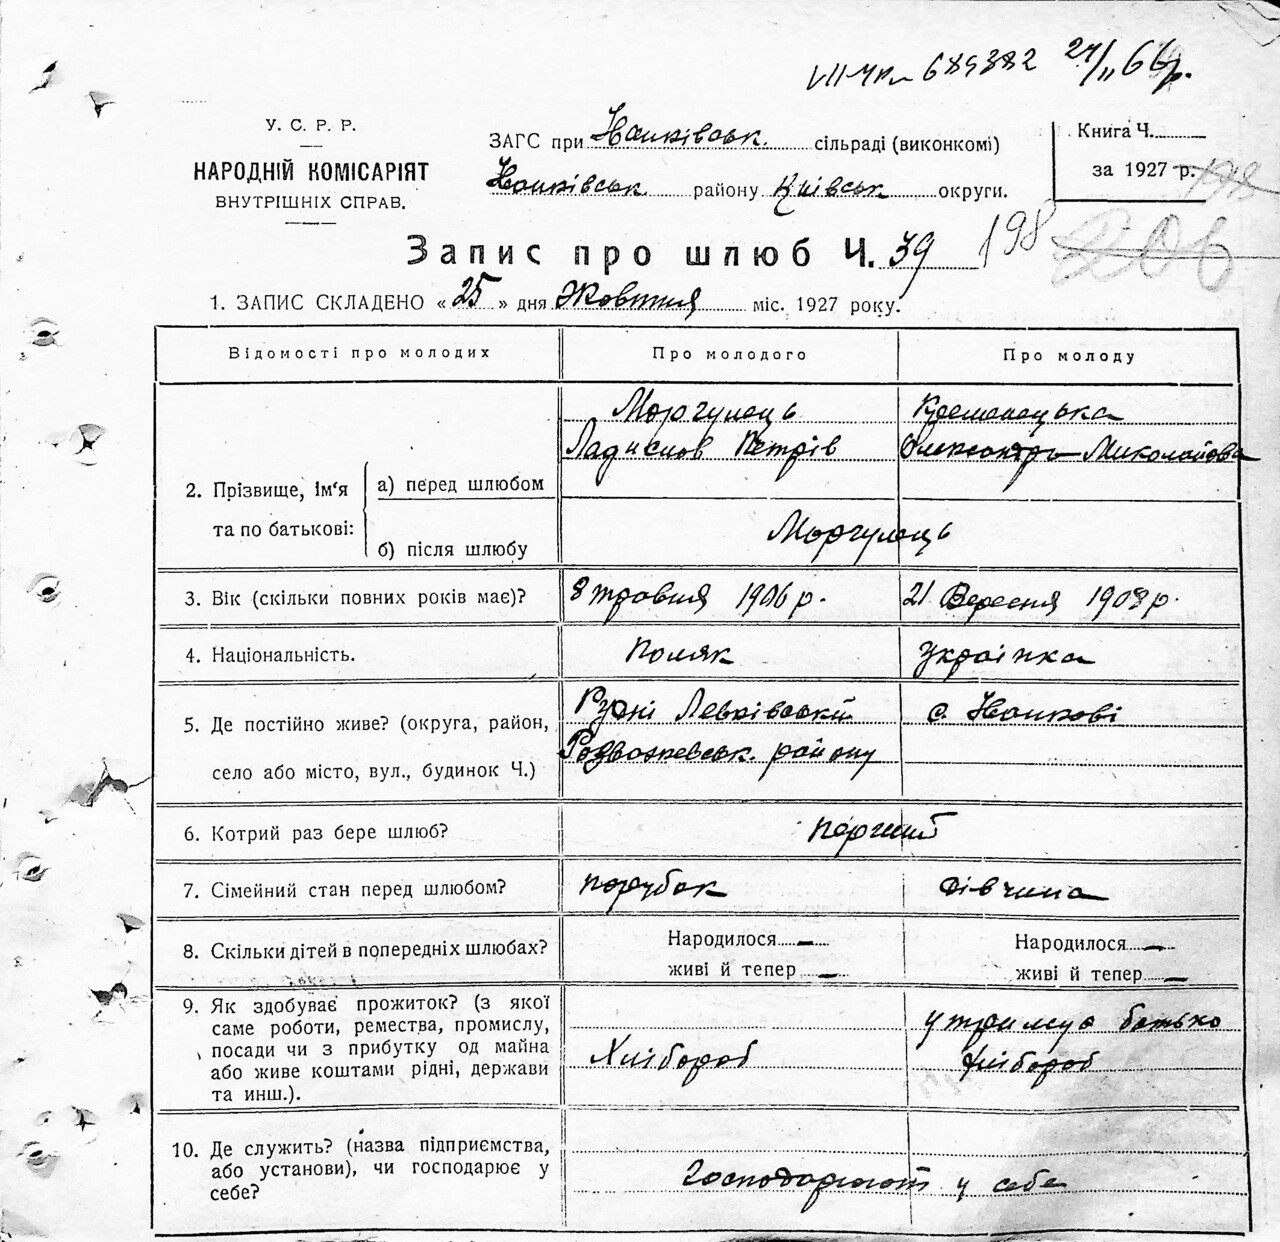 689382 24/II 66р.
У. С. Р. Р.
НАРОДНІЙ КОМІСАРІЯТ
ВНУТРІШНІХ СПРАВ.
ЗАГС при Іванківськ. сільраді (виконкомі)
Іванківськ. району Київськ округи.
Книга Ч.
за 1927 р.
198
206
Запис про шлюб Ч. 39
198
1. ЗАПИС СКЛАДЕНО « 25 » дня Жовтня міс. 1927 року.
Відомості про молодих
Про молодого
Про молоду
2. Прізвище, ім'я та по батькові:
а) перед шлюбом
Моргулець
Ладислав Петрів
Кременецька
Олександра Миколайова
б) після шлюбу
Моргулець
3. Вік (скільки повних років має)?
8 травня 1906 р.
21 Вересня 1908 р.
4. Національність.
Поляк
Українка
5. Де постійно живе? (округа, район,
село або місто, вул., будинок Ч.)
Левківській
Розважевськ. району
с. Іванкові
6. Котрий раз бере шлюб?
Перший
7. Сімейний стан перед шлюбом?
парубок
дівчина
8. Скільки дітей в попередніх шлюбах?
Народилося —
живі й тепер —
Народилося —
живі й тепер —
9. Як здобуває прожиток? (з якої
саме роботи, ремества, промислу,
посади чи з прибутку од майна
або живе коштами рідні, держави
та инш.).
Хлібороб
утримує батько
Хлібороб
10. Де служить? (назва підприємства,
або установи), чи господарює у
себе?
Господарюют у себе